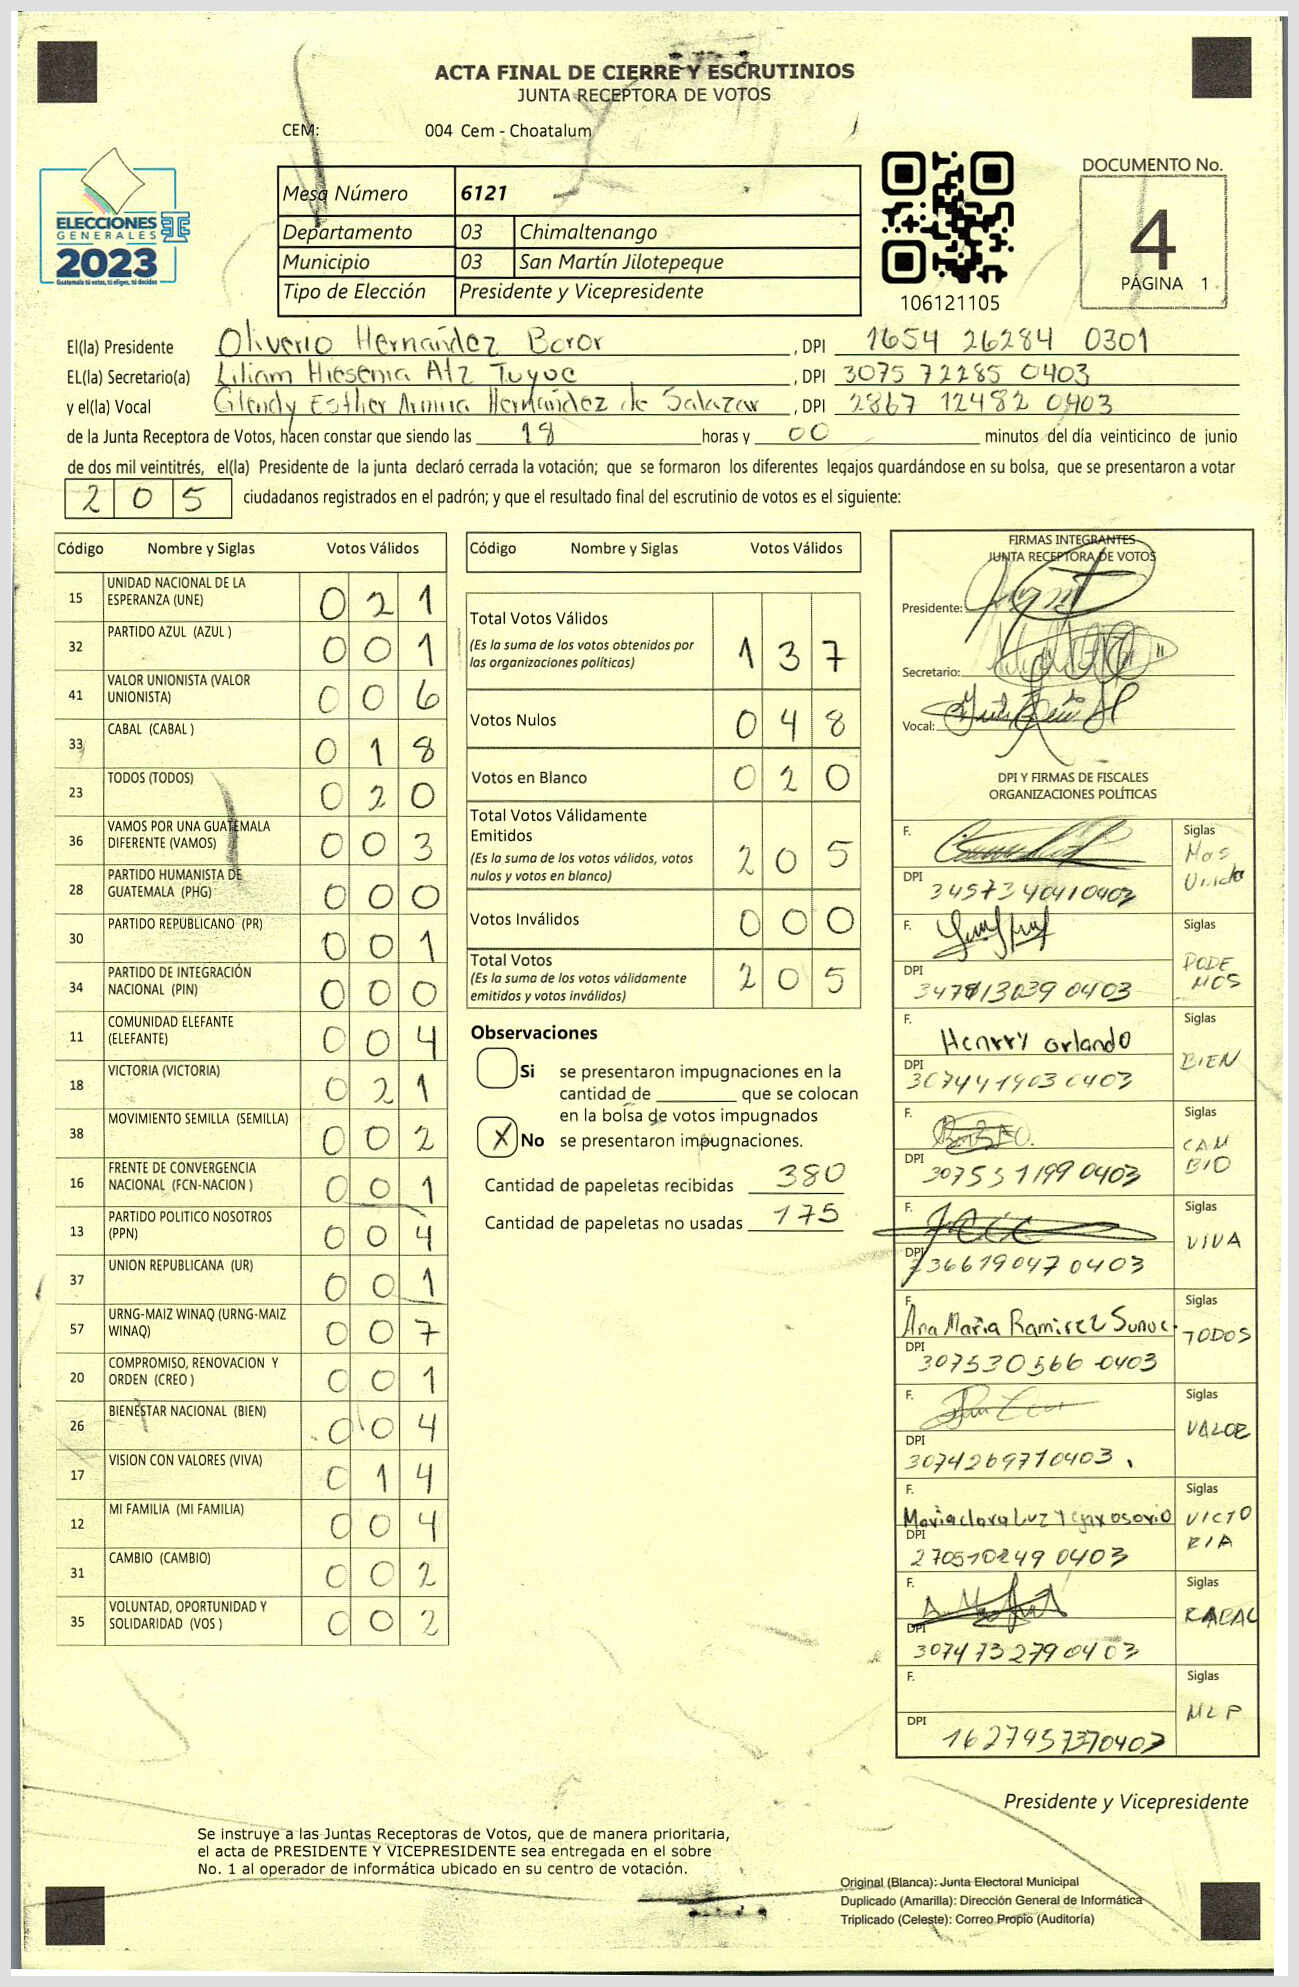 ACTA FINAL DE CIERRE Y ESCRUTINIOS
JUNTA RECEPTORA DE VOTOS
CEM: 004 Cem - Choatalum
ELECCIONES
GENERALES
2023
Guatemala tú votas, tú eliges, tú decides
Mesa Número 6121
Departamento 03 Chimaltenango
Municipio 03 San Martín Jilotepeque
Tipo de Elección Presidente y Vicepresidente
106121105
DOCUMENTO No.
4
PÁGINA 1
El(la) Presidente Oliverio Hernández Boror, DPI 1654 26284 0301
EL(la) Secretario(a) Liliam Hiesenia Atz Tuyuc, DPI 3075 72285 0403
y el(la) Vocal Glendy Esther Hernández de Salazar, DPI 2867 12482 0403
de la Junta Receptora de Votos, hacen constar que siendo las 18 horas y 00 minutos del día veinticinco de junio
de dos mil veintitrés, el(la) Presidente de la junta declaró cerrada la votación; que se formaron los diferentes legajos guardándose en su bolsa, que se presentaron a votar
205 ciudadanos registrados en el padrón; y que el resultado final del escrutinio de votos es el siguiente:
Código Nombre y Siglas Votos Válidos
15 UNIDAD NACIONAL DE LA ESPERANZA (UNE) 021
32 PARTIDO AZUL (AZUL ) 001
41 VALOR UNIONISTA (VALOR UNIONISTA) 006
33 CABAL (CABAL ) 018
23 TODOS (TODOS) 020
36 VAMOS POR UNA GUATEMALA DIFERENTE (VAMOS) 003
28 PARTIDO HUMANISTA DE GUATEMALA (PHG) 000
30 PARTIDO REPUBLICANO (PR) 001
34 PARTIDO DE INTEGRACIÓN NACIONAL (PIN) 000
11 COMUNIDAD ELEFANTE (ELEFANTE) 004
18 VICTORIA (VICTORIA) 021
38 MOVIMIENTO SEMILLA (SEMILLA) 002
16 FRENTE DE CONVERGENCIA NACIONAL (FCN-NACION ) 001
13 PARTIDO POLITICO NOSOTROS (PPN) 004
37 UNION REPUBLICANA (UR) 001
57 URNG-MAIZ WINAQ (URNG-MAIZ WINAQ) 007
20 COMPROMISO, RENOVACION Y ORDEN (CREO ) 001
26 BIENESTAR NACIONAL (BIEN) 004
17 VISION CON VALORES (VIVA) 014
12 MI FAMILIA (MI FAMILIA) 004
31 CAMBIO (CAMBIO) 002
35 VOLUNTAD, OPORTUNIDAD Y SOLIDARIDAD (VOS ) 002
Código Nombre y Siglas Votos Válidos
Total Votos Válidos 137
(Es la suma de los votos obtenidos por las organizaciones políticas)
Votos Nulos 048
Votos en Blanco 020
Total Votos Válidamente Emitidos 205
(Es la suma de los votos válidos, votos nulos y votos en blanco)
Votos Inválidos 000
Total Votos 205
(Es la suma de los votos válidamente emitidos y votos inválidos)
Observaciones
Si se presentaron impugnaciones en la
cantidad de ________ que se colocan
en la bolsa de votos impugnados
X No se presentaron impugnaciones.
Cantidad de papeletas recibidas 380
Cantidad de papeletas no usadas 175
FIRMAS INTEGRANTES
JUNTA RECEPTORA DE VOTOS
Presidente:
Secretario:
Vocal:
DPI Y FIRMAS DE FISCALES
ORGANIZACIONES POLÍTICAS
F. Siglas
DPI 3457340410403
F. Siglas PODEMOS
DPI 0403
F. Henrry Orlando Siglas BIEN
DPI 3074419030403
F. Siglas CAMBIO
DPI 3075311990403
F. Siglas VIVA
DPI 0403
F. Ana Maria Ramirez Sunuc. Siglas TODOS
DPI 307530566 0403
F. Siglas VALOR
DPI 3074269710403
F. Siglas VICTORIA
DPI 0403
F. Siglas
DPI 3074732790403
F. Siglas MLP
DPI
Presidente y Vicepresidente
Se instruye a las Juntas Receptoras de Votos, que de manera prioritaria,
el acta de PRESIDENTE Y VICEPRESIDENTE sea entregada en el sobre
No. 1 al operador de informática ubicado en su centro de votación.
Original (Blanca): Junta Electoral Municipal
Duplicado (Amarilla): Dirección General de Informática
Triplicado (Celeste): Correo Propio (Auditoría)